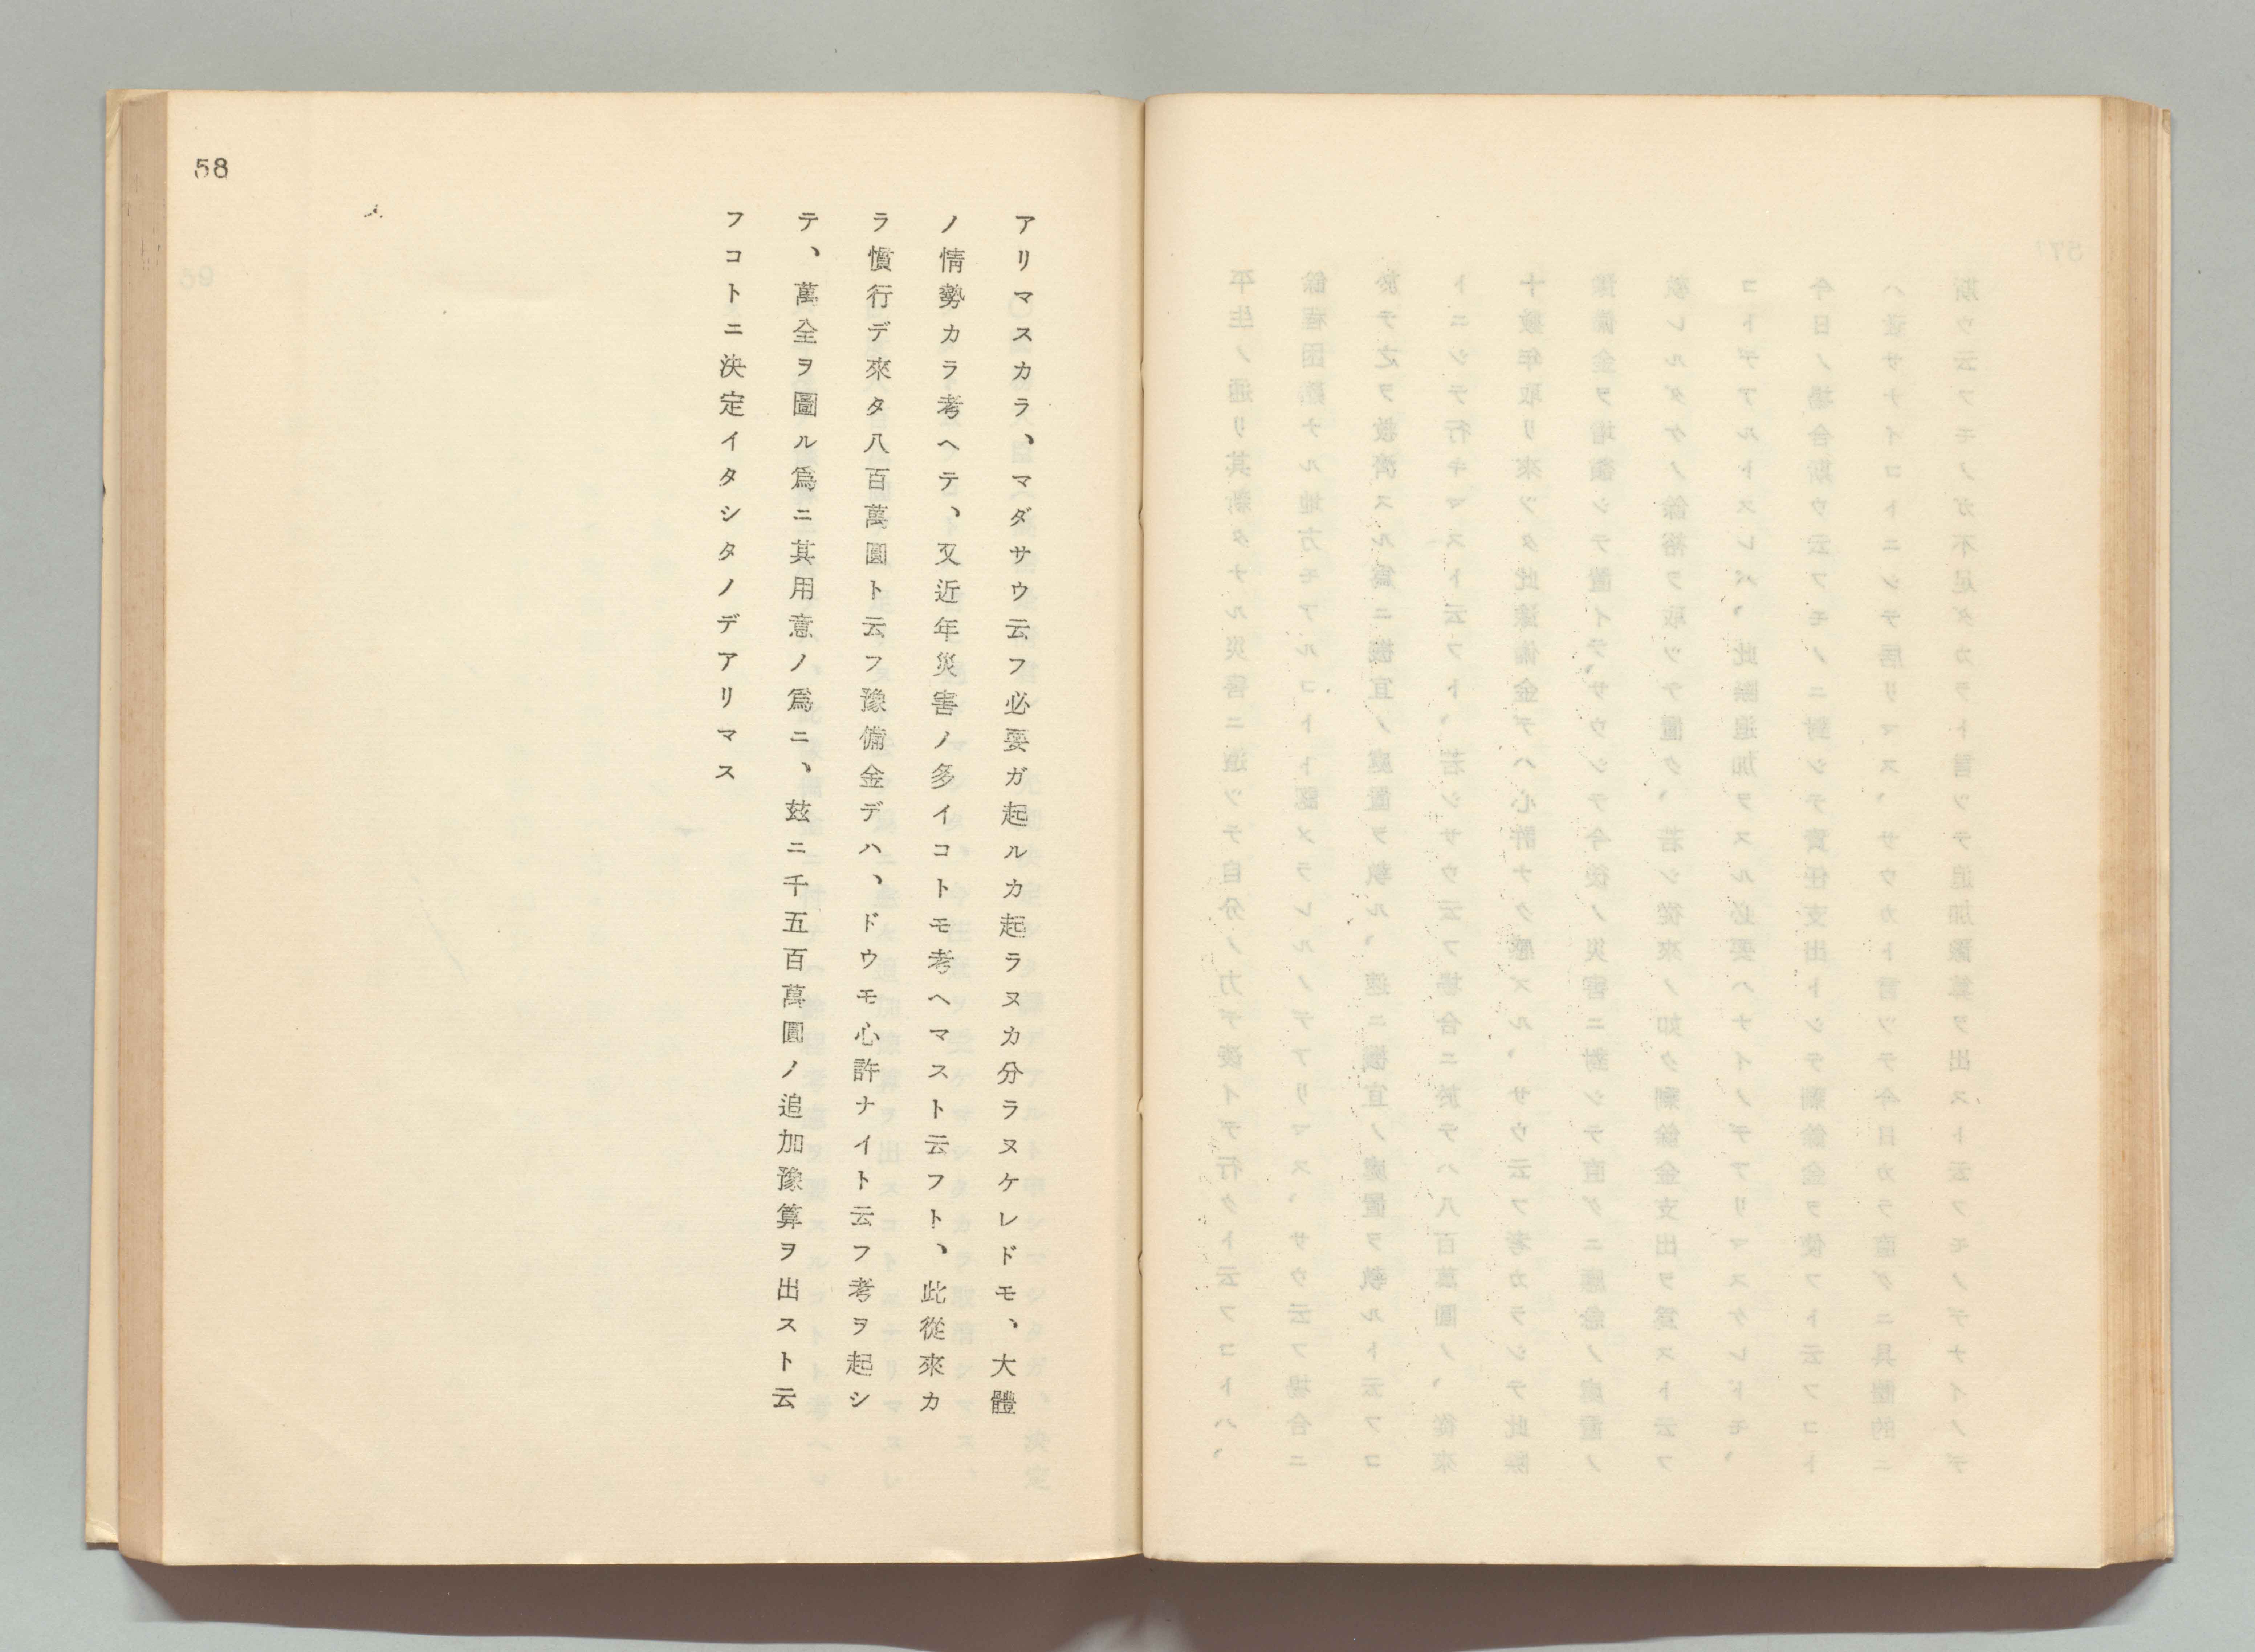 58
アリマスカラ、マダサウ云フ必要ガ起ルカ起ラヌカ分ラヌケレドモ、大體
ノ情勢カラ考ヘテ、又近年災害ノ多イコトモ考ヘマスト云フト、此從來カ
ラ慣行デ來タ八百萬圓ト云フ豫備金デハ、ドウモ心許ナイト云フ考ヲ起シ
テ、萬全ヲ圖ル爲ニ其用意ノ爲ニ、茲ニ千五百萬圓ノ追加豫算ヲ出スト云
フコトニ決定イタシタノデアリマス